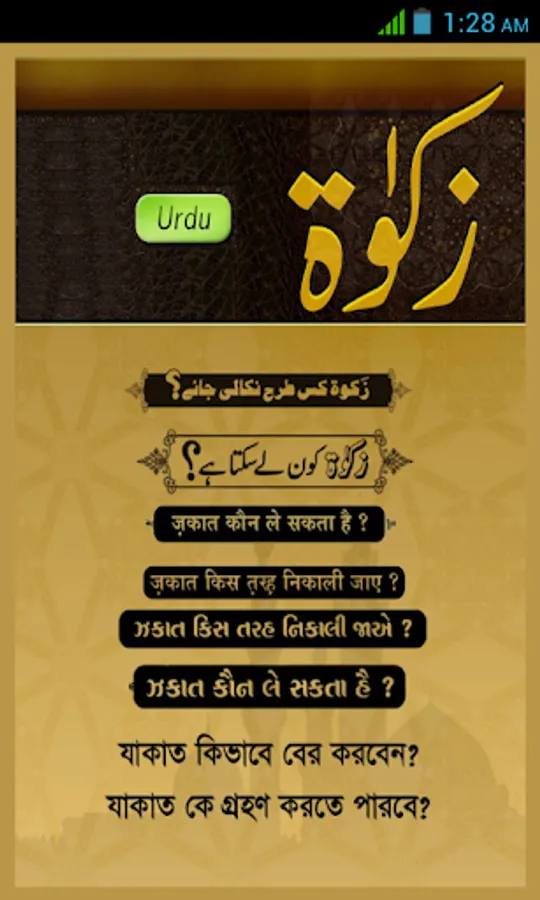 1:28 AM
زکوٰۃ
Urdu
زَکوۃ کس طرح نکالی جائے؟
زکوٰۃ کون لے سکتا ہے؟
ज़कात कौन ले सकता है ?
ज़कात किस त़रह़ निकाली जाए ?
ઝકાત કિસ તરહ નિકાલી જાએ ?
ઝકાત કૌન લે સકતા હૈ ?
যাকাত কিভাবে বের করবেন?
যাকাত কে গ্রহণ করতে পারবে?